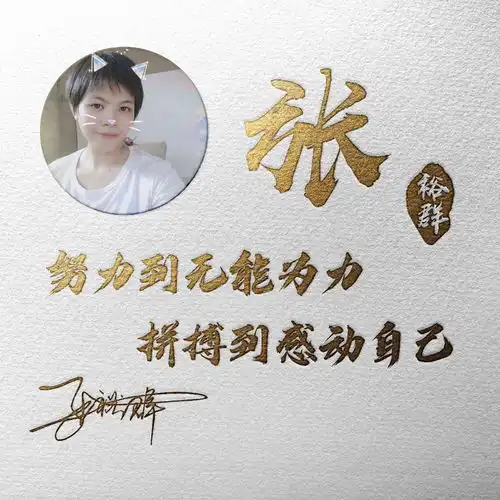 张
裕群
努力到无能为力
拼搏到感动自己
张裕群